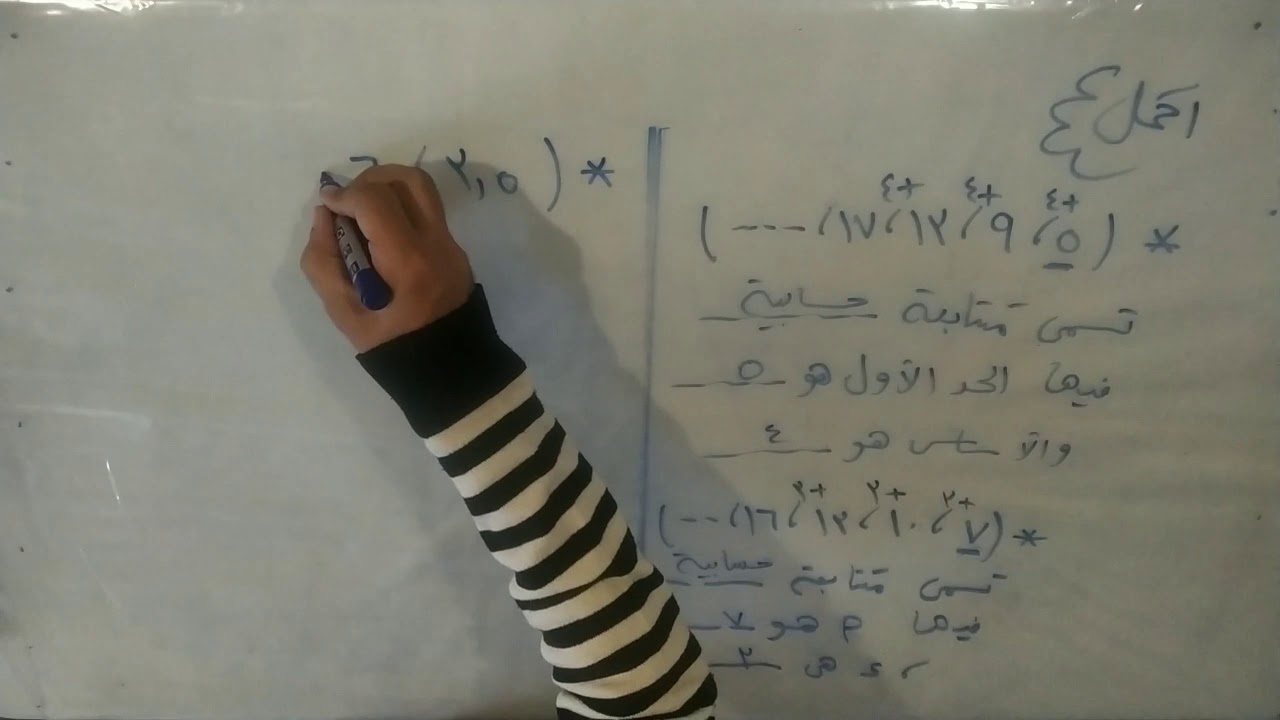 اكمل
+٤ +٤ +٤
* ( ٥ ، ٩ ، ١٣ ، ١٧ ، ---- )
تسمى متتابعة حسابية
فيها الحد الأول هو ٥
والأساس هو ٤
+٣ +٣ +٣
* ( ٧ ، ١٠ ، ١٣ ، ١٦ ، --- )
تسمى متتابعة حسابية
فيها م هو ٧
، ء هى ٣
* ( ٢,٥ ،